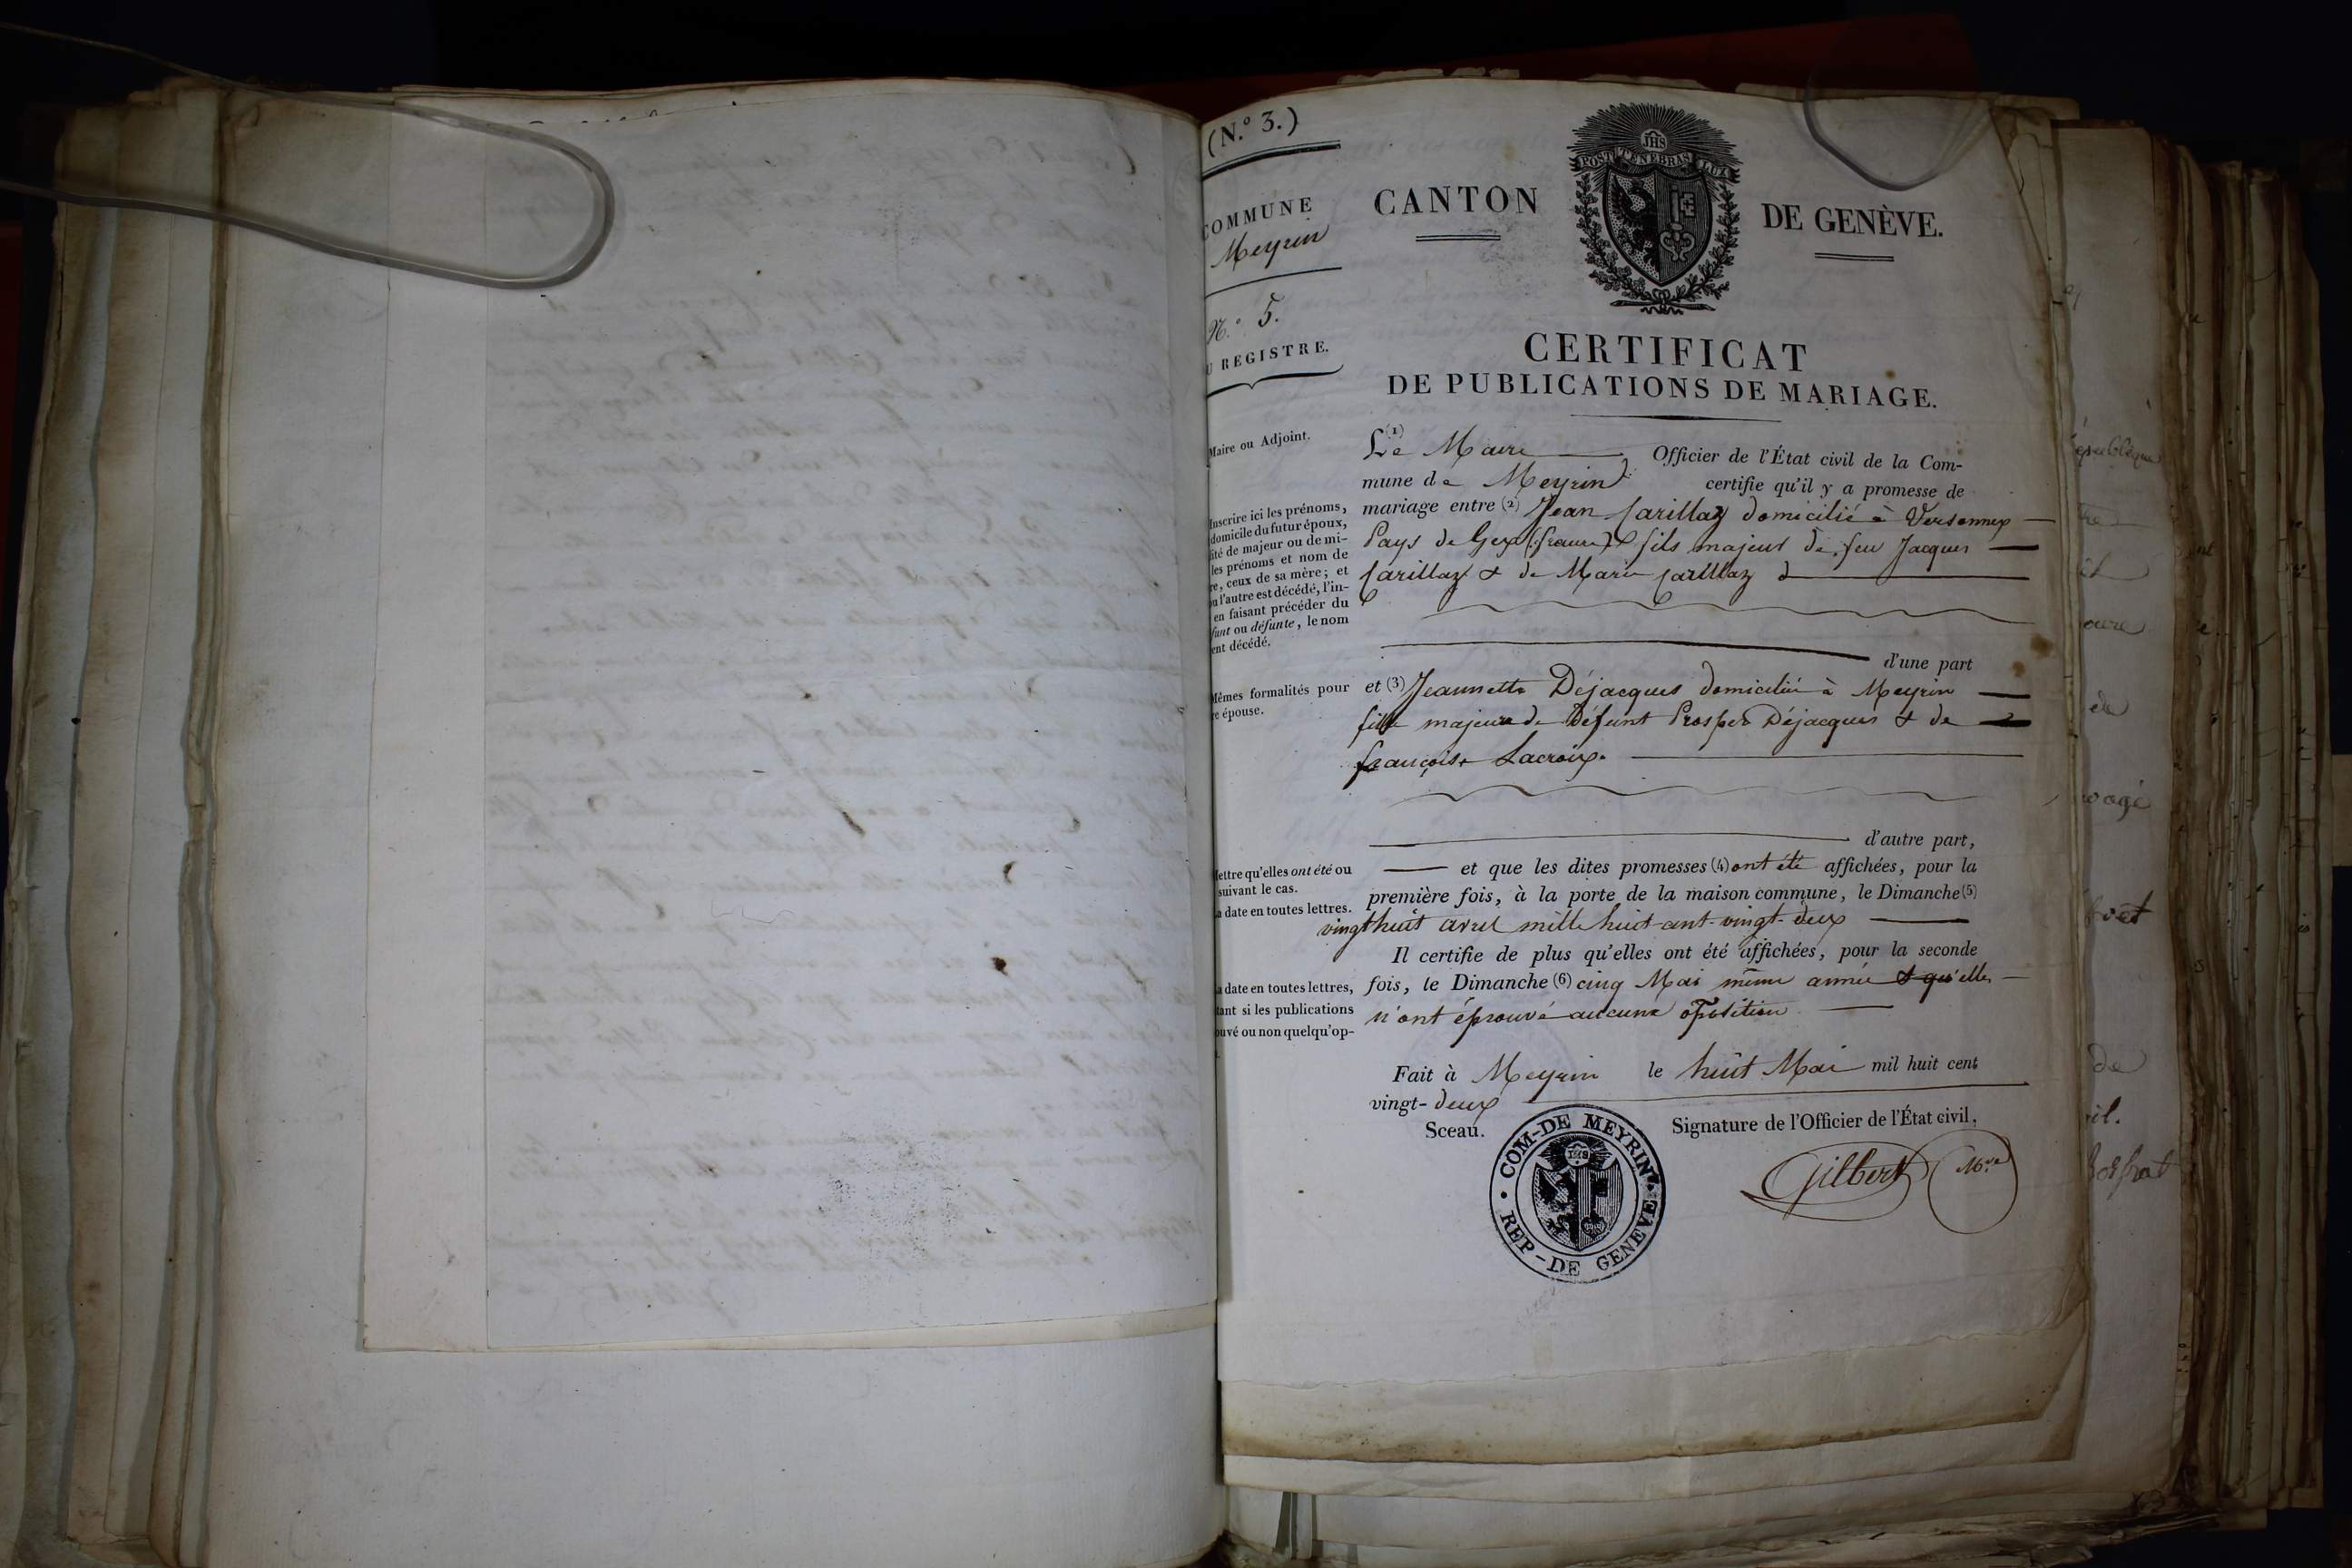 (N.° 3.)
COMMUNE
Meyrin
N.° 5.
REGISTRE.
JHS
POST TENEBRAS LUX
CANTON DE GENÈVE.
CERTIFICAT
DE PUBLICATIONS DE MARIAGE.
Maire ou Adjoint.
Le (1) Maire Officier de l'État civil de la Com-
mune de Meyrin certifie qu'il y a promesse de
mariage entre (2) Jean Carillaz domicilié à Versonnex
Pays de Gex (france) fils majeur de feu Jacques
Carillaz & de Marie Carillaz
d'une part
Inscrire ici les prénoms,
domicile du futur époux,
ité de majeur ou de mi-
les prénoms et nom de
re, ceux de sa mère; et
u l'autre est décédé, l'in-
en faisant précéder du
funt ou défunte, le nom
ent décédé.
et (3) Jeannette Déjacques domiciliée à Meyrin
fille majeure de Défunt Prosper Déjacques & de
françoise Lacroix.
d'autre part,
Mêmes formalités pour
re épouse.
et que les dites promesses (4) ont été affichées, pour la
première fois, à la porte de la maison commune, le Dimanche (5)
vingt huit avril mille huit-cent-vingt-deux
Il certifie de plus qu'elles ont été affichées, pour la seconde
fois, le Dimanche (6) cinq Mai même année & qu'elles
n'ont éprouvé aucune oposition
Mettre qu'elles ont été ou
suivant le cas.
a date en toutes lettres.
a date en toutes lettres,
tant si les publications
ouvé ou non quelqu'op-
Fait à Meyrin le huit Mai mil huit cent
vingt-deux
Sceau.
Signature de l'Officier de l'État civil,
Gilbert M.re
COM-DE MEYRIN
REP-DE GENEVE
IHS
épublique
de
wogé
de